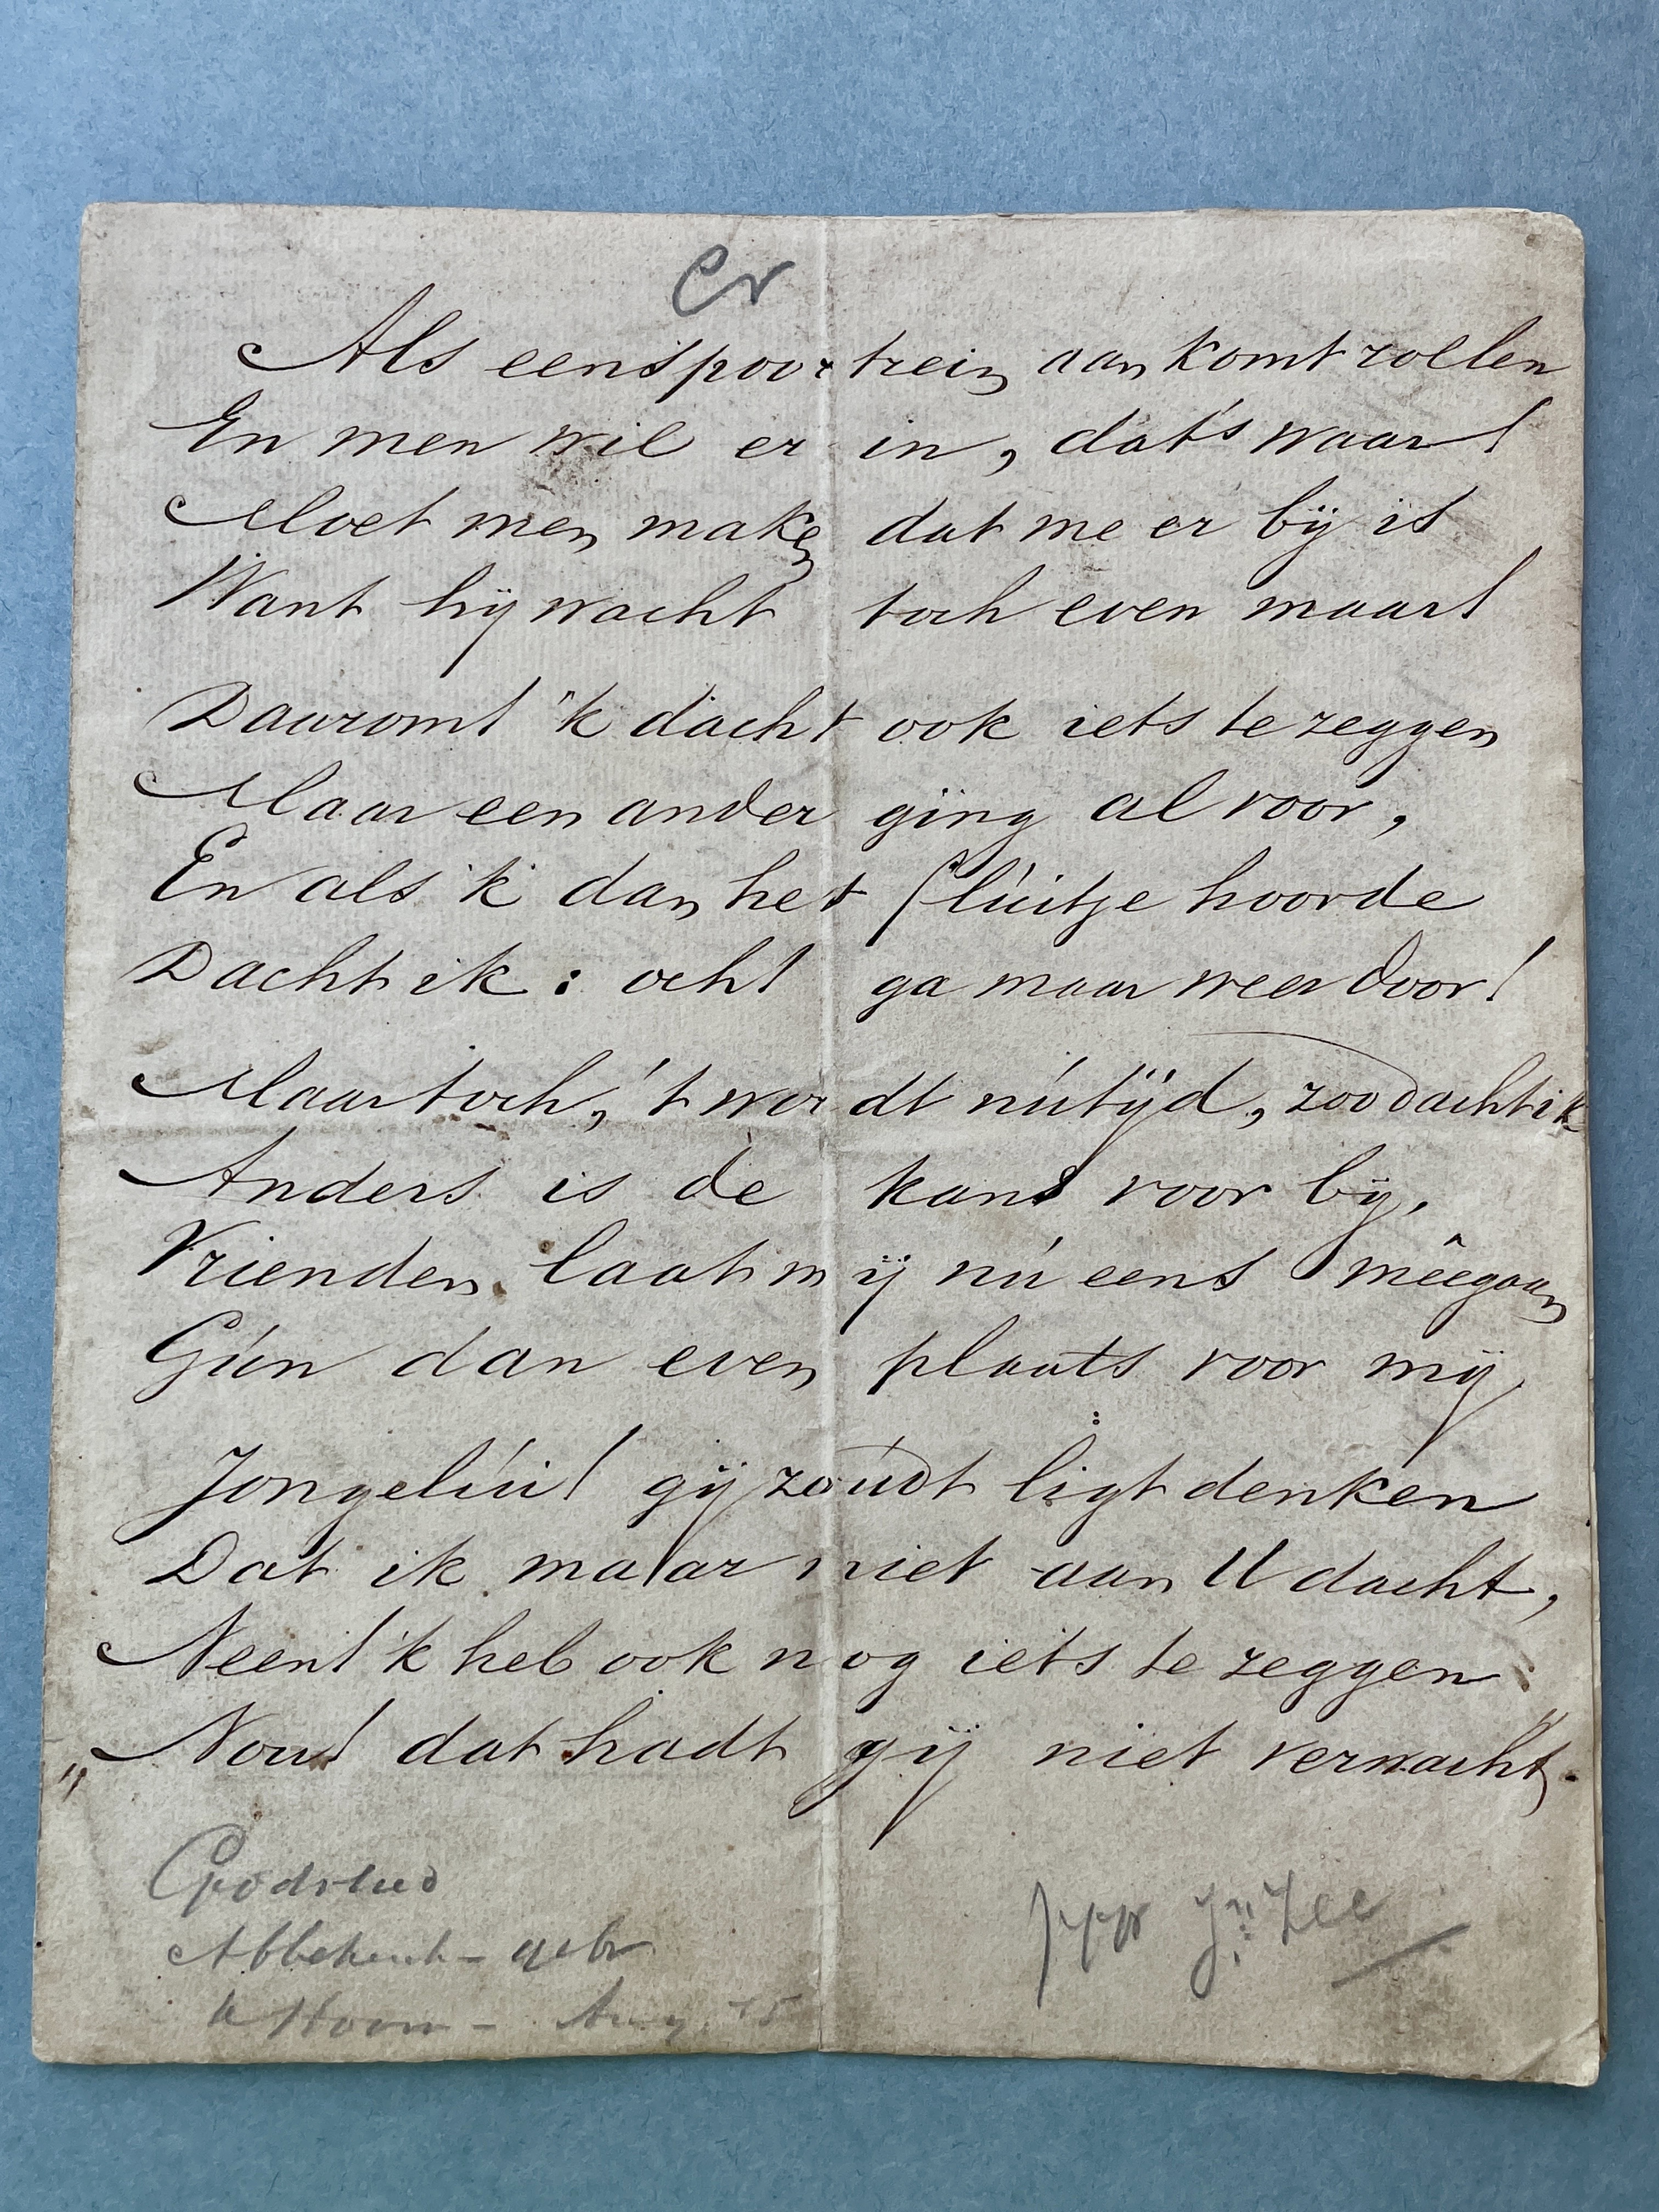 Cr
Als een spoortrein aan komt rollen
En men wil er in, dat's waar!
Moet men maken dat me er bij is
Want hij wacht toch even maar!
Daarom! 'k dacht ook iets te zeggen
Maar een ander ging al voor,
En als 'k dan het fluitje hoorde
Dacht ik: och! ga maar weer door!
Maar toch, 't wordt nú tijd, zoo dacht ik
Anders is de kans voor bij,
Vrienden laat mij nú eens mêegaan
Gún dan even plaats voor mij
Jongelúi! gij zoudt ligt denken:
Dat ik maar niet aan U dacht,
Neen! 'k heb ook nog iets te zeggen
„Nou! dat hadt gij niet verwacht."
Jn: Zee
Abbekerk -
Hoorn - Aug 75